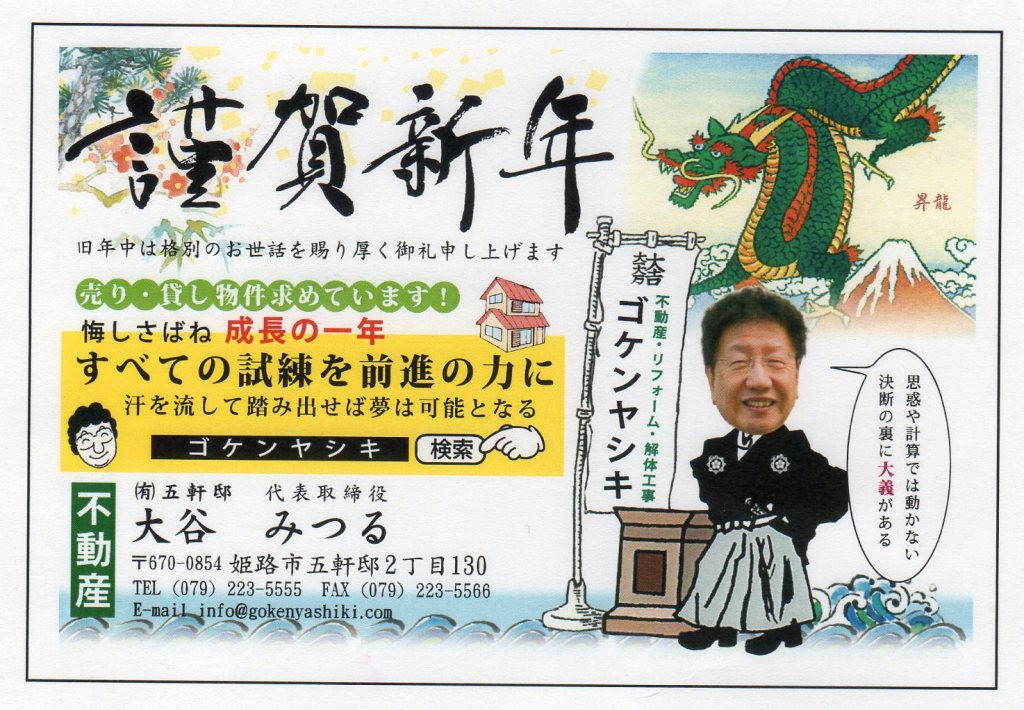 謹賀新年
旧年中は格別のお世話を賜り厚く御礼申し上げます
売り・貸し物件求めています！
悔しさばね 成長の一年
すべての試練を前進の力に
汗を流して踏み出せば夢は可能となる
ゴケンヤシキ 検索
不動産
㈲五軒邸 代表取締役
大谷 みつる
〒670-0854 姫路市五軒邸2丁目130
TEL (079) 223-5555 FAX (079) 223-5566
E-mail info@gokenyashiki.com
昇龍
不動産・リフォーム・解体工事
ゴケンヤシキ
思惑や計算では動かない
決断の裏に大義がある